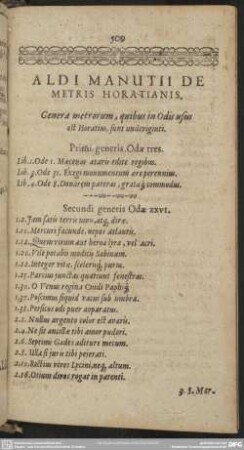 509
ALDI MANUTII DE
METRIS HORATIANIS.
Genera metrorum, quibus in Odis usus
est Horatius, sunt undeviginti.
Primi generis Odæ tres.
Lib. 1. Ode 1. Mæcenas atavis edite regibus.
Lib. 3. Ode 30. Exegi monumentum ære perennius.
Lib. 4. Ode 8. Donarem pateras, grataq; commodus.
Secundi generis Odæ xxvi.
1.2. Jam satis terris nivis, atq; diræ.
1.10. Mercuri facunde, nepos Atlantis,
1.12. Quem virum aut heroa lyra, vel acri.
1.20. Vile potabis modicis Sabinum.
1.22. Integer vitæ, scelerisq; purus.
1.25. Parcius junctas quatiunt fenestras.
1.30. O Venus regina Cnidi Paphiq;
1.32. Poscimus siquid vacui sub umbra.
1.38. Persicos odi puer apparatus.
2.2. Nullus argento color est avaris.
2.4. Ne sit ancillæ tibi amor pudori.
2.6. Septimi Gades aditure mecum.
2.8. Ulla si juris tibi pejerati.
2.10. Rectius vives Lycini, neq; altum.
2.16. Otium divos rogat in patenti.
3. 8. Mar.